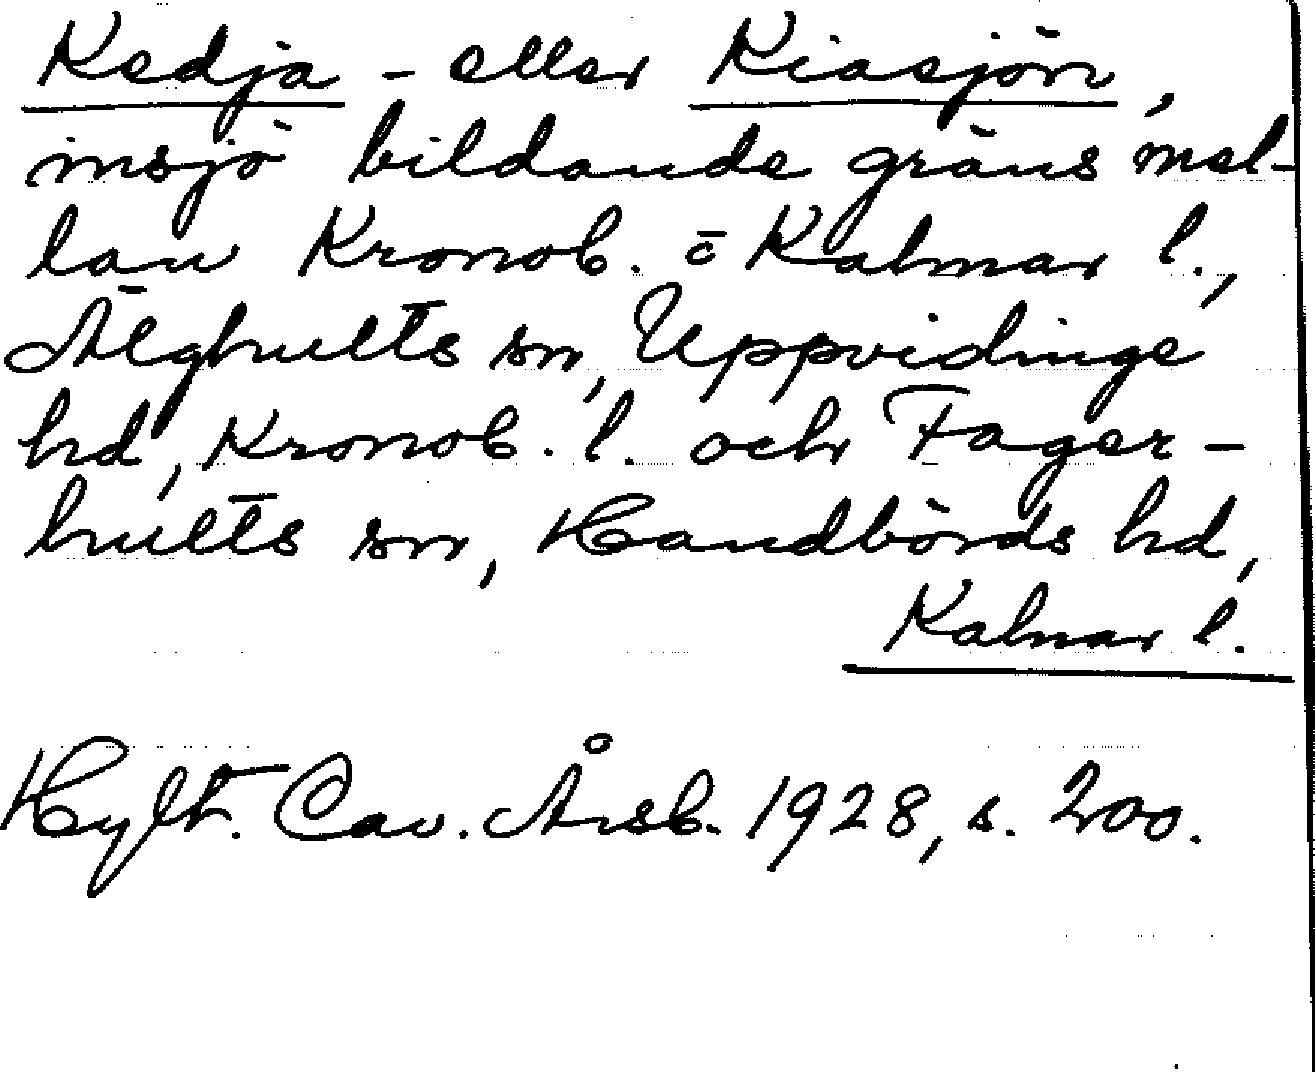 Kedja - eller Kiasjön,
insjö bildande gräns mel-
lan Kronob. o Kalmar l.,
Älghults sn, Uppvidinge
hd, Kronob. l. och Fager-
hults sn, Handbörds hd,
Kalmar l.
Hylt. Cav. Årsb. 1928, s. 200.